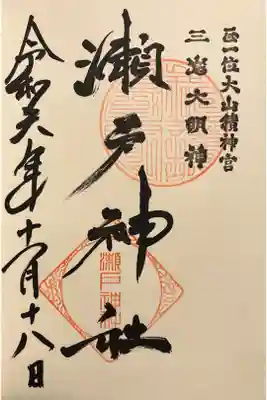 正一位大山積神宮
三島大明神
瀬戸神社
瀬戸神社
令和六年十一月十八日